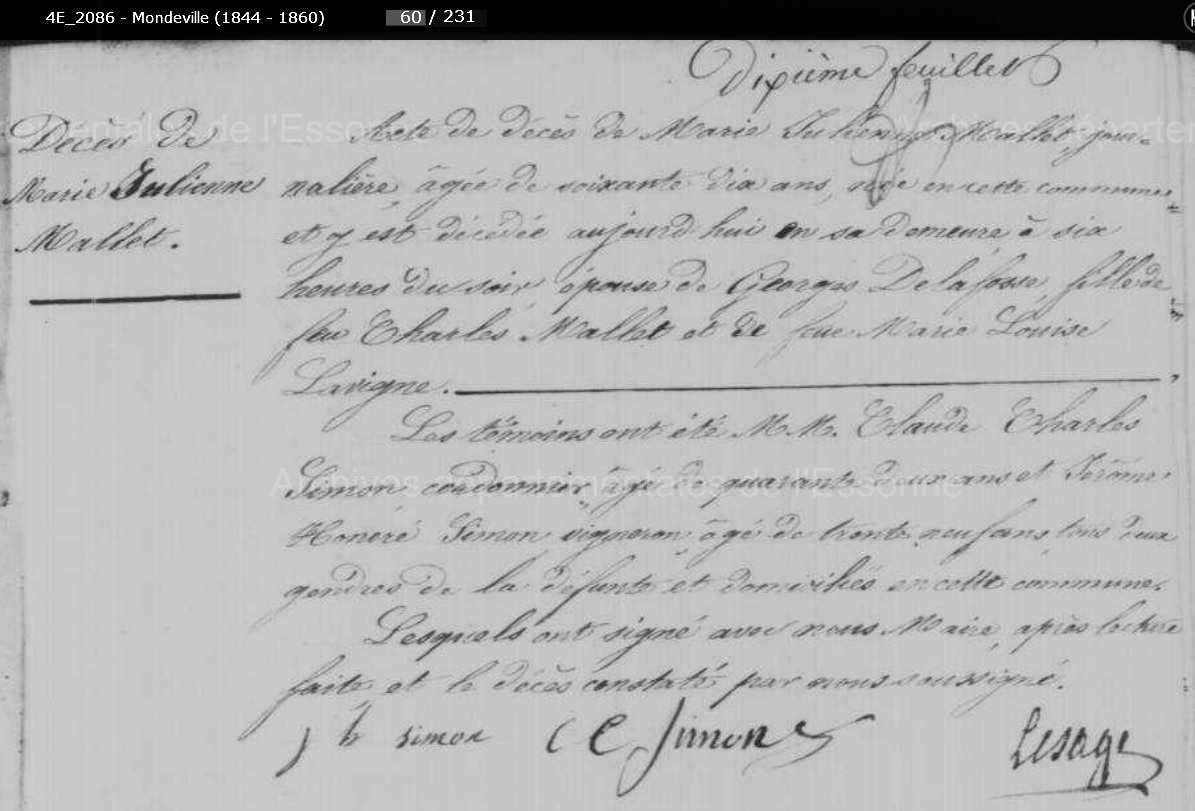 4E_2086 - Mondeville (1844 - 1860) 60 / 231
Dixième feuillet
Décès de
Marie Julienne
Mallet.
Acte de décès de Marie Julienne Mallet, jour-
nalière, âgée de soixante dix ans, née en cette commune
et y est décédée aujourd'hui en sa demeure à six
heures du soir, épouse de Georges Delafosse, fille de
feu Charles Mallet et de feue Marie Louise
Lavigne.
Les témoins ont été M.M. Claude Charles
Simon cordonnier, âgé de quarante deux ans et Jérôme
Honoré Simon, vigneron, âgé de trente neuf ans, tous deux
gendres de la défunte et domiciliés en cette commune.
Lesquels ont signé avec nous Maire, après lecture
faite, et le décès constaté par nous soussigné.
J h simon C C Simon Lesage
Archives départementales de l'Essonne